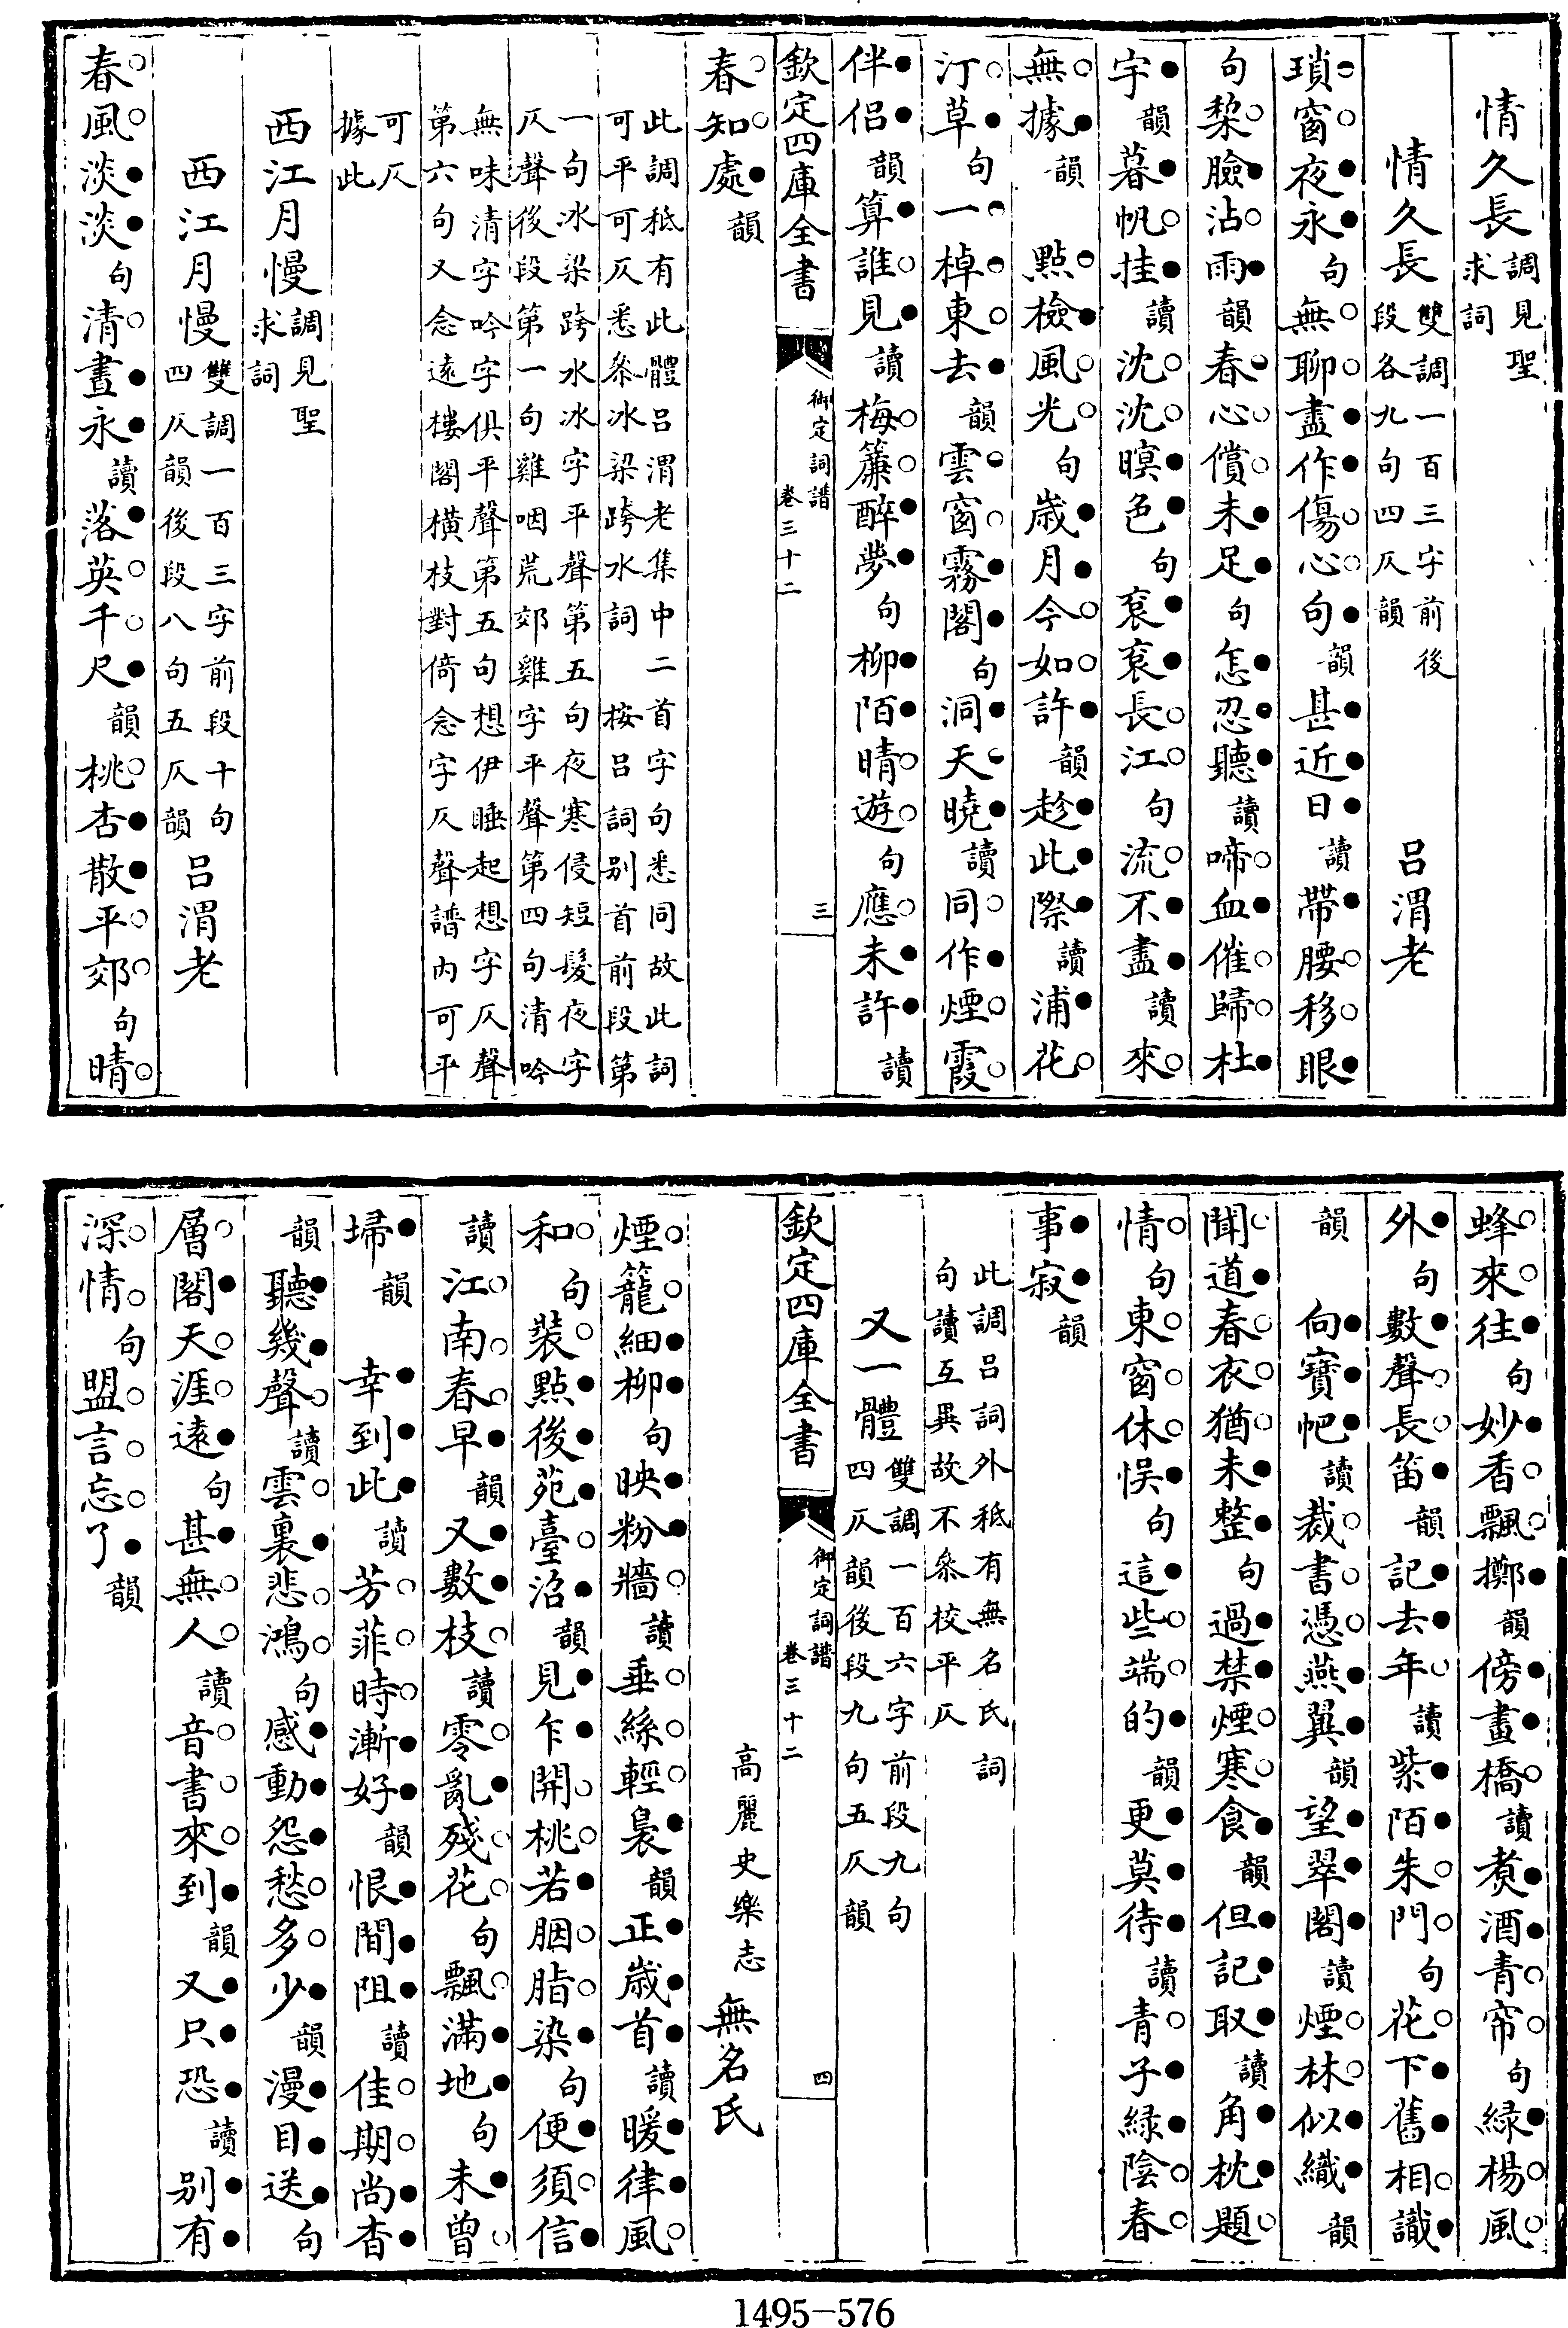 情久長調見聖求詞
情久長雙調一百三字前後段各九句四仄韻 呂渭老
瑣窗夜永句無聊盡作傷心句韻甚近日讀帶腰移眼
句棃臉沾雨韻春心償未足句怎忍聽讀啼血催歸杜
宇韻暮帆挂讀沈沈暝色句衮衮長江句流不盡讀來
無據韻 點檢風光句歲月今如許韻趁此際讀浦花
汀草句一棹東去韻雲窗霧閣句洞天曉讀同作煙霞
伴侶韻算誰見讀梅簾醉夢句柳陌晴遊句應未許讀
欽定四庫全書 御定詞譜卷三十二 三
春知處韻
此調秪有此體呂渭老集中二首字句悉同故此詞
可平可仄悉叅冰梁跨水詞 按呂詞别首前段第
一句冰梁跨水冰字平聲第五句夜寒侵短髮夜字
仄聲後段第一句雞咽荒郊雞字平聲第四句清吟
無味清字吟字俱平聲第五句想伊睡起想字仄聲
第六句又念遠樓閣橫枝對倚念字仄聲譜内可平
可仄據此
西江月慢調見聖求詞
西江月慢雙調一百三字前段十句四仄韻後段八句五仄韻 呂渭老
春風淡淡句清晝永讀落英千尺韻桃杏散平郊句晴
蜂來往句妙香飄擲韻傍畫橋讀煑酒青帘句綠楊風
外句數聲長笛韻記去年讀紫陌朱門句花下舊相識
韻 向寶帊讀裁書憑燕翼韻望翠閣讀煙林似織韻
聞道春衣猶未整句過禁煙寒食韻但記取讀角枕題
情句東窗休悞句這些端的韻更莫待讀青子綠陰春
事寂韻
此調呂詞外秪有無名氏詞
句讀互異故不叅校平仄
又一體雙調一百六字前段九句四仄韻後段九句五仄韻
欽定四庫全書 御定詞譜卷三十二 四
高麗史樂志 無名氏
煙籠細柳句映粉牆讀垂絲輕裊韻正歲首讀暖律風
和句裝點後苑臺沼韻見乍開桃若胭脂染句便須信
讀江南春早韻又數枝讀零亂殘花句飄滿地句未曾
埽韻 幸到此讀芳菲時漸好韻恨間阻讀佳期尚杳
韻聽幾聲讀雲裏悲鴻句感動怨愁多少韻漫目送句
層閣天涯遠句甚無人讀音書來到韻又只恐讀别有
深情句盟言忘了韻
1495-576